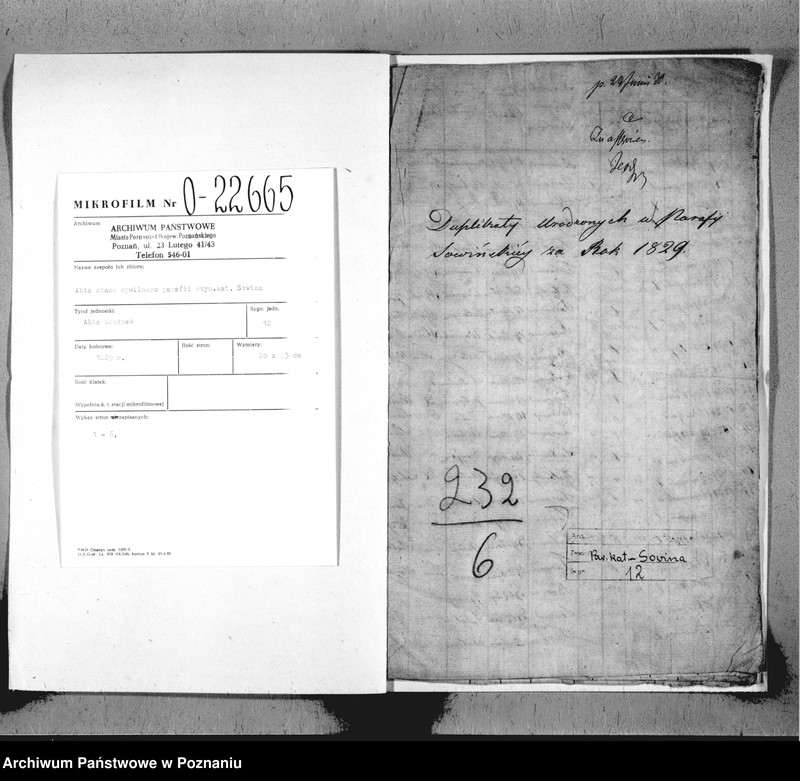 MIKROFILM Nr O-22665
Archiwum
ARCHIWUM PAŃSTWOWE
Miasta Poznania i Wojew. Poznańskiego
Poznań, ul. 23 Lutego 41/43
Telefon 546-01
Nazwa zespołu lub zbioru:
Akta stanu cywilnego parafii rzym.kat. Sowina
Tytuł jednostki:
Sygn. jedn.
Akta urodzeń
12
Daty końcowe:
Ilość stron:
Wymiary:
1829 r.
20 x 33 cm
Ilość klatek:
Wypełnia k. t. stacji mikrofilmowej
Wykaz stron zapisanych:
1 - 6,
Duplikaty Urodzonych w Parafij
Sowińskiéy za Rok 1829.
232
6
Par. kat-Sowina
12
Archiwum Państwowe w Poznaniu